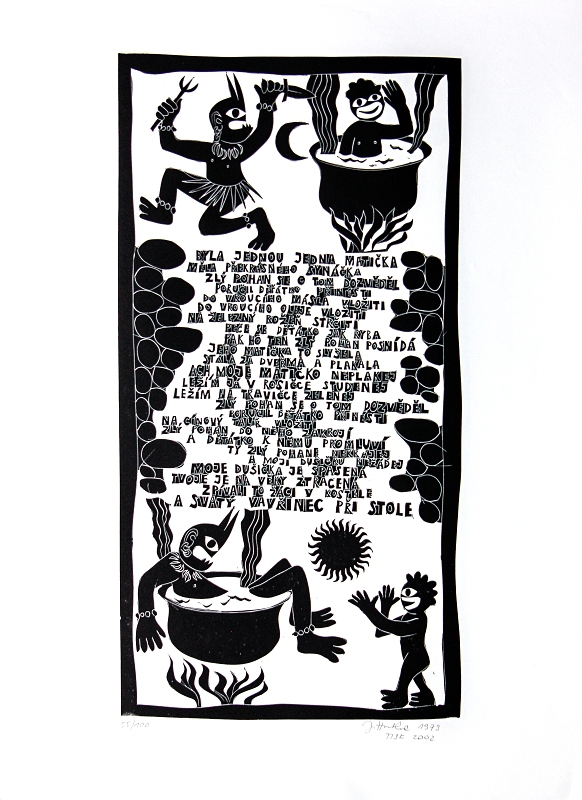 BYLA JEDNOU JEDNA MATIČKA
MĚLA PŘEKRÁSNÉHO SYNÁČKA
ZLÝ POHAN SE O TOM DOZVĚDĚL
PORUČIL DĚŤÁTKO PŘINÉSTI
DO VROUCÍHO MÁSLA VLOŽITI
DO VROUCÍHO OLEJE VLOŽITI
NA ŽELEZNÝ ROŽEŇ STRČITI
PEČE SE DĚŤÁTKO JAK RYBA
JAK HO TEN ZLÝ POHAN POSNÍDÁ
JEHO MATIČKA TO SLYŠELA
STÁLA ZA DVEŘMA A PLAKALA
ACH MOJE MATIČKO NEPLAKEJ
LEŽÍM JÁ V ROSIČCE STUDENEJ
LEŽÍM NA TRAVIČCE ZELENEJ
ZLÝ POHAN SE O TOM DOZVĚDĚL
PORUČIL DĚŤÁTKO PŘINÉSTI
NA CÍNOVÝ TALÍŘ VLOŽITI
ZLÝ POHAN DO NĚHO ZAKROJÍ
A DĚŤÁTKO K NĚMU PROMLUVÍ
TY ZLÝ POHANE NEKRÁJEJ
A MOJI DUŠIČKU NEŽÁDEJ
MOJE DUŠIČKA JE SPASENA
TVOJE JE NA VĚKY ZTRACENA
ZPÍVALI TO ŽÁCI V KOSTELE
A SVATÝ VAVŘINEC PŘI STOLE
1979
2002